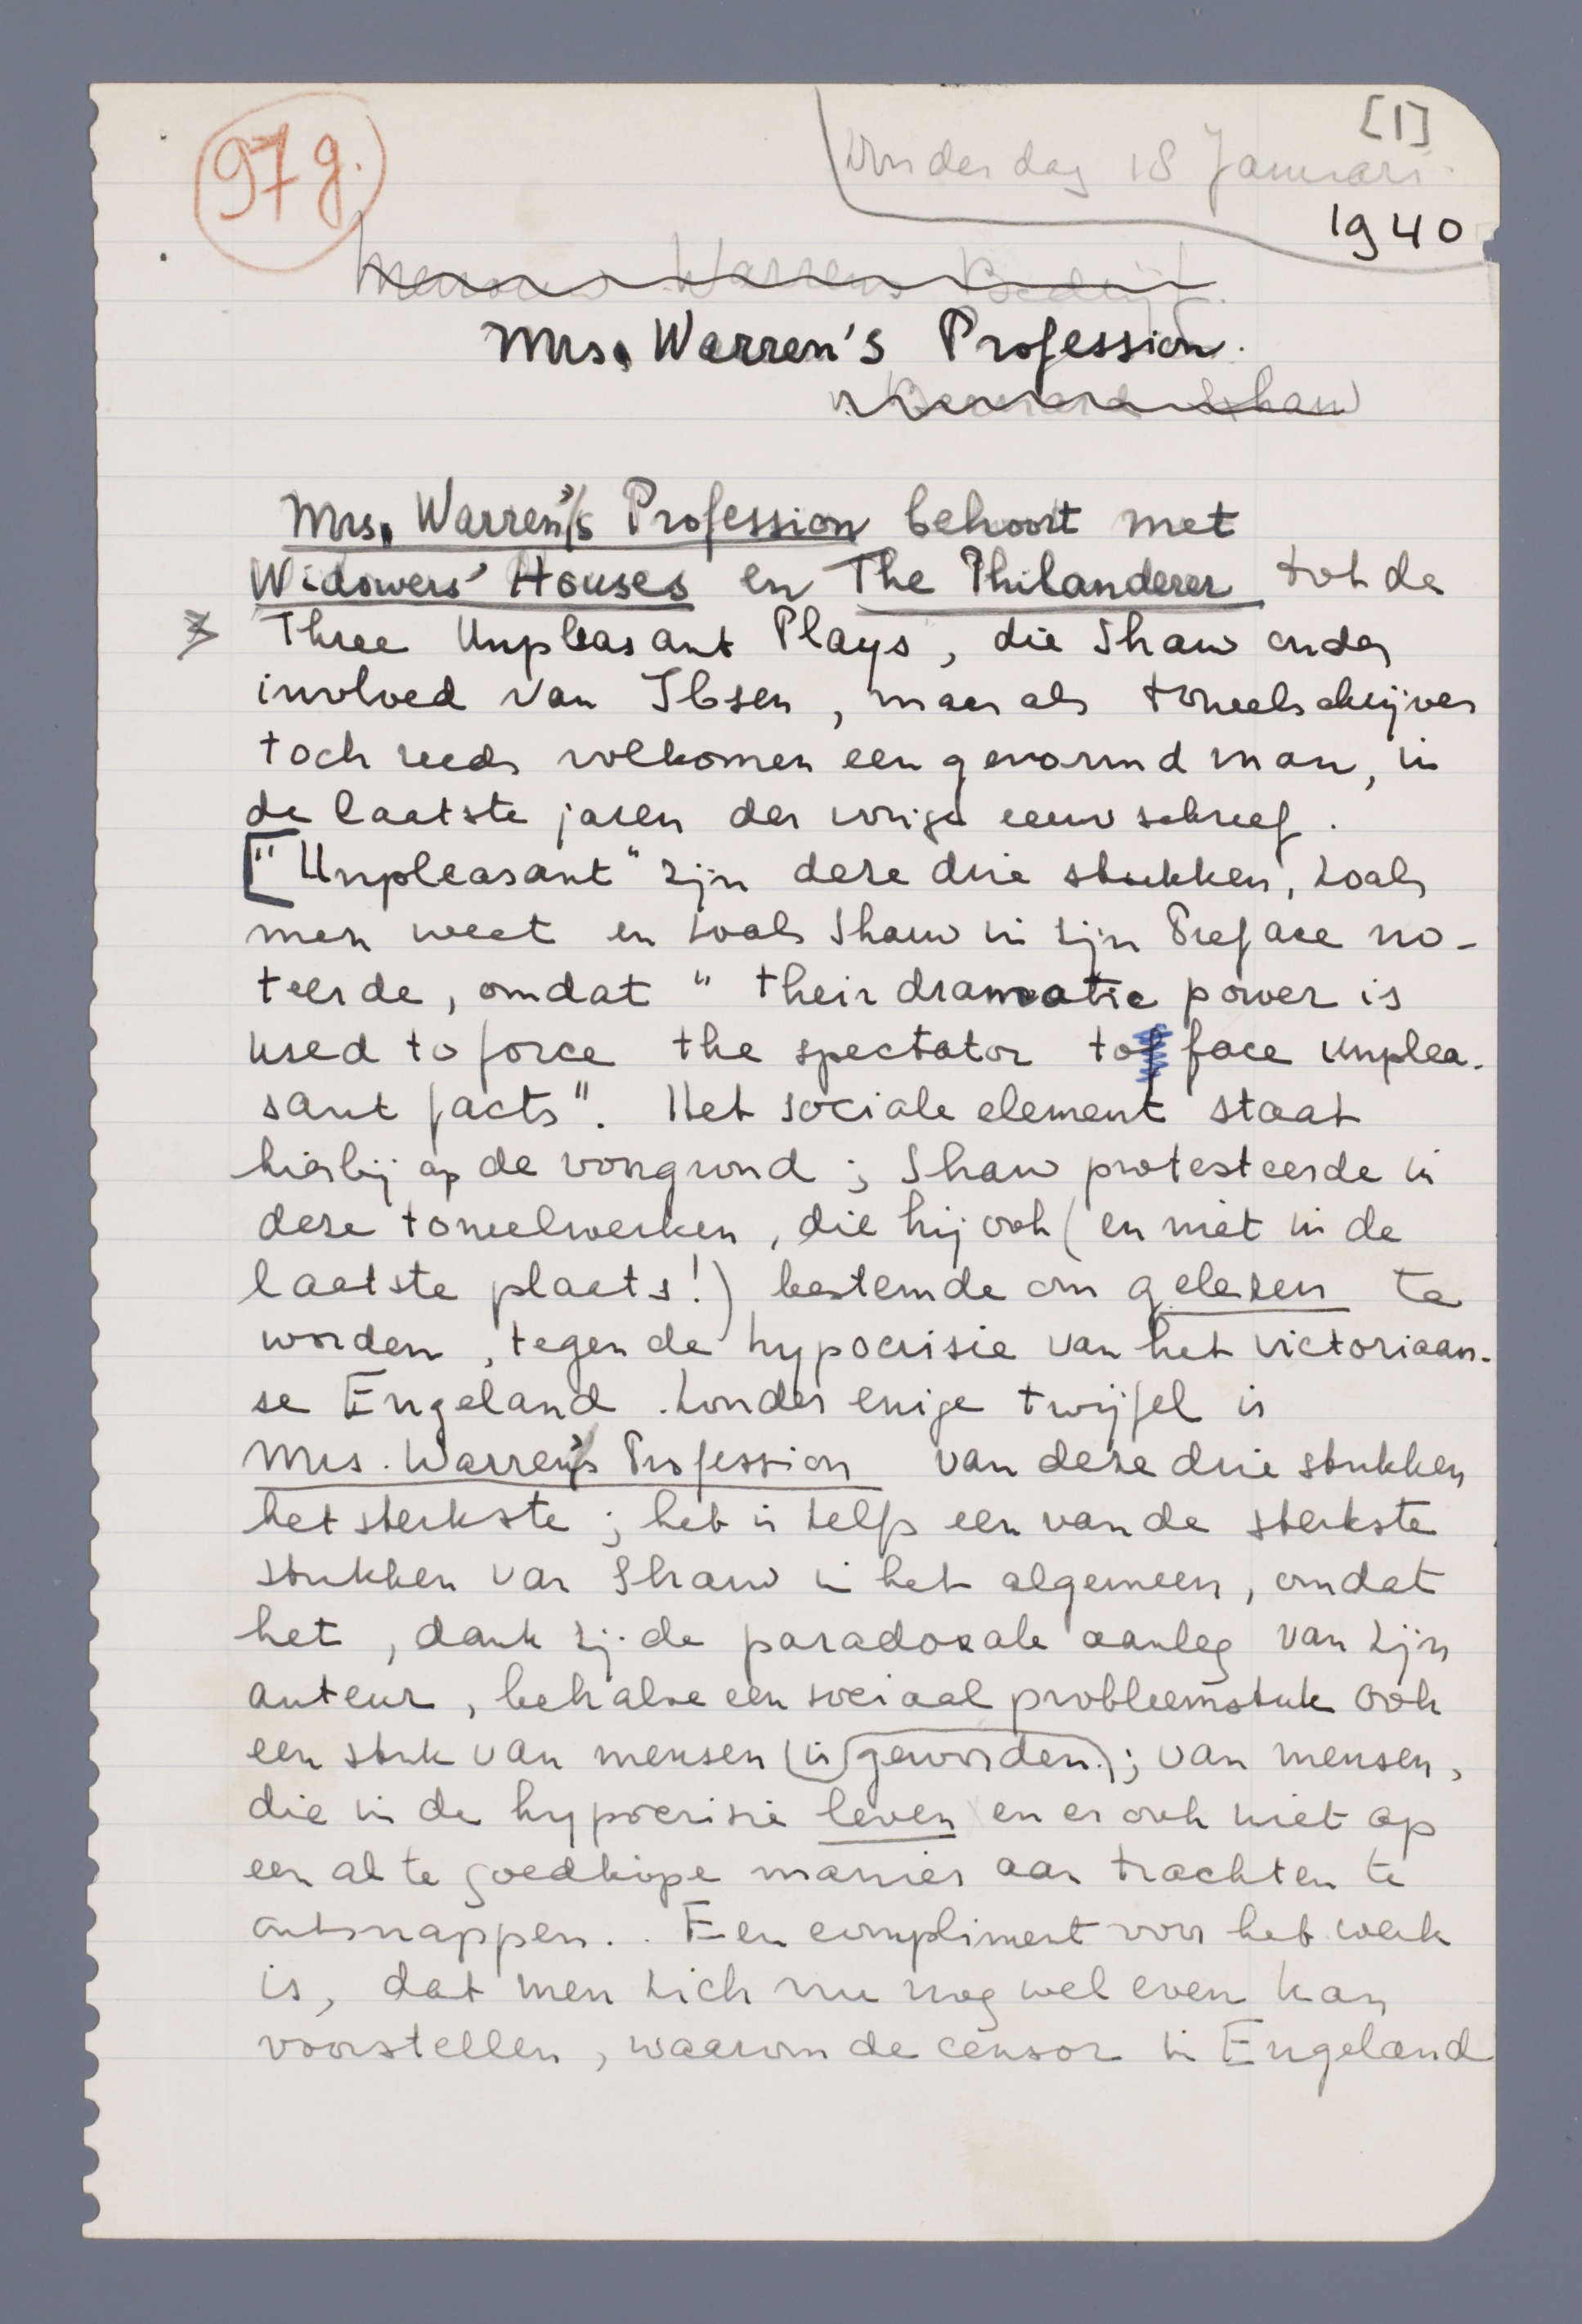 97g.
[1]
Donderdag 18 Januari
1940
Mevrouw Warren's Bedrijf.
Mrs. Warren's Profession.
Bernard Shaw
Mrs. Warren's Profession behoort met
Widowers' Houses en The Philanderer tot de
Three Unpleasant Plays, die Shaw onder
invloed van Ibsen, maar als toneelschrijver
toch reeds volkomen een gevormd man, in
de laatste jaren der vorige eeuw schreef.
["Unpleasant" zijn deze drie stukken, zoals
men weet en zoals Shaw in zijn Preface no-
teerde, omdat "their dramatic power is
used to force the spectator to face unplea-
sant facts". Het sociale element staat
hierbij op de voorgrond; Shaw protesteerde in
deze toneelwerken, die hij ook (en niet in de
laatste plaats!) bestemde om gelezen te
worden, tegen de hypocrisie van het victoriaan-
se Engeland. Zonder enige twijfel is
Mrs. Warren's Profession van deze drie stukken
het sterkste; het is zelfs een van de sterkste
stukken van Shaw in het algemeen, omdat
het, dank zij de paradoxale aanleg van zijn
auteur, behalve een sociaal probleemstuk ook
een stuk van mensen (is geworden); van mensen,
die in de hypocrisie leven en er ook niet op
een al te goedkope manier aan trachten te
ontsnappen.. Een compliment voor het werk
is, dat men zich nu nog wel even kan
voorstellen, waarom de censor in Engeland